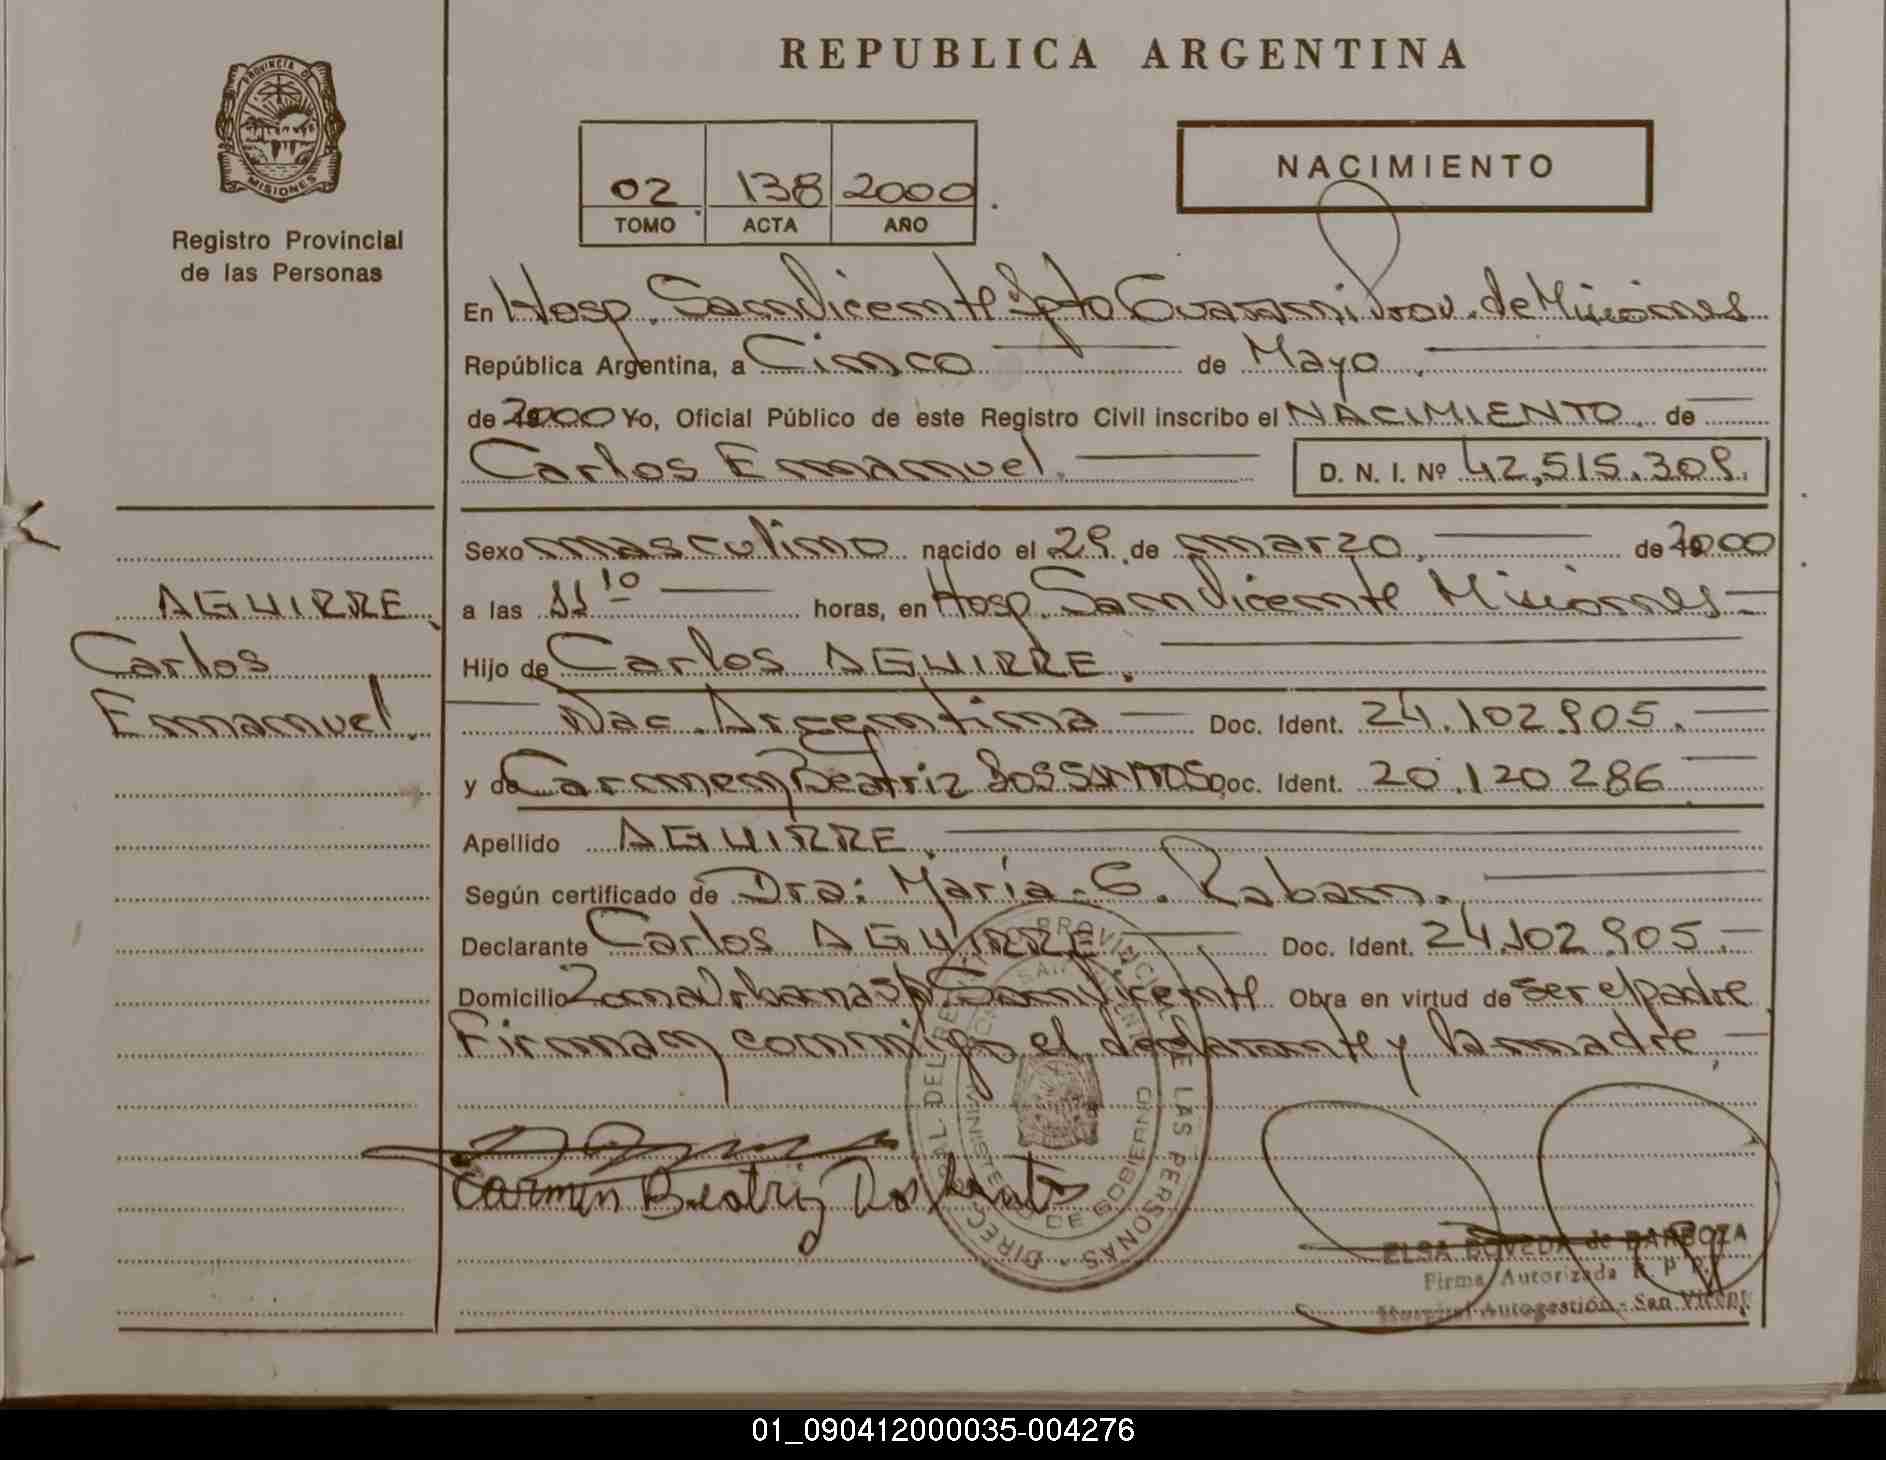 REPUBLICA ARGENTINA
PROVINCIA D
MISIONES
Registro Provincial
de las Personas
02 138 2000
TOMO ACTA AÑO
NACIMIENTO
En Hosp. San Vicente Dpto Guarani Prov. de Misiones
República Argentina, a Cinco de Mayo.
de 2000 Yo, Oficial Público de este Registro Civil inscribo el NACIMIENTO. de
Carlos Emanuel. D. N. I. Nº 42,515.309.
Sexo masculino nacido el 29 de marzo. de 2000
AGUIRRE
Carlos
Emanuel.
a las 11 10 horas, en Hosp. San Vicente Misiones
Hijo de Carlos AGUIRRE.
Nac. Argentina Doc. Ident. 24.102.905.
y de Carmen Beatriz DOS SANTOS Doc. Ident. 20.120.286
Apellido AGUIRRE.
Según certificado de Dra: María. G. Raban.
Declarante Carlos AGUIRRE Doc. Ident. 24.102.905.
Domicilio Zona Urbana S/N San Vicente Obra en virtud de ser el padre
Firman conmigo el declarante y la madre.
Carmen Beatriz Dos Santos
PROVINCIAL DE LAS PERSONAS
MINISTERIO DE GOBIERNO
ELSA POVEDA de BARBOZA
Firma Autorizada R. P. P.
Hospital Autogestión - San Vicente
01_090412000035-004276